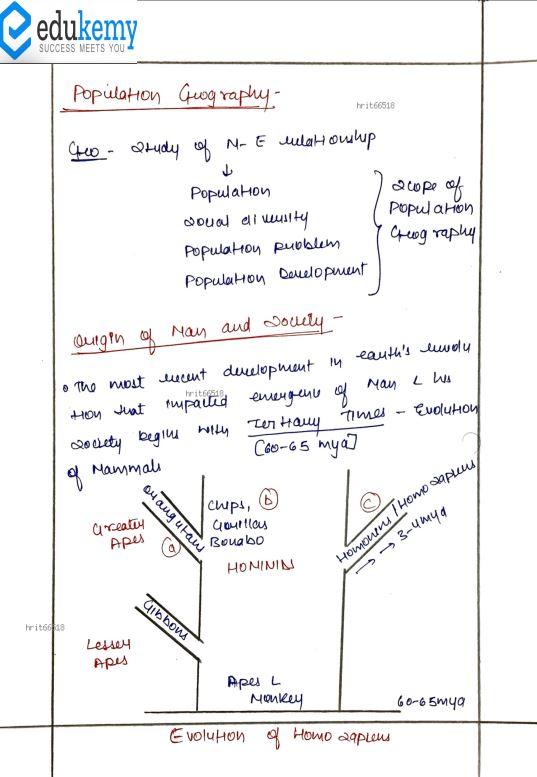 edukemy
SUCCESS MEETS YOU
Population Geography -
hrit66518
Geo - Study of M-E relationship
↓
Population
Social diversity
Population problem
Population Development
Scope of
Population
Geography
Origin of Man and Society -
• The most recent development in earth's
hrit66518
tion that impacted emergence of Man & his
Society begins with Tertiary Times - Evolution
[60-65 mya]
of Mammals
Orangutans
Greater
Apes
(a)
Chips,
Gorillas
Bonabo
(b)
HOMINIDS
(c)
Homonens / Homo sapiens
→ → 3-4mya
Gibbons
hrit66518
Lesser
Apes
Apes &
Monkey
60-65mya
Evolution of Homo sapiens